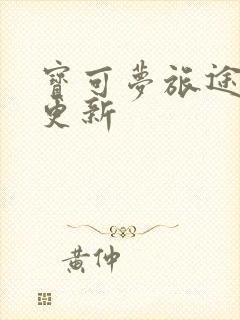 寶可夢旅途
更新
黃仲